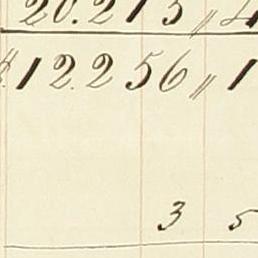 20.215 〃 4
$12.256 〃 1
3 5